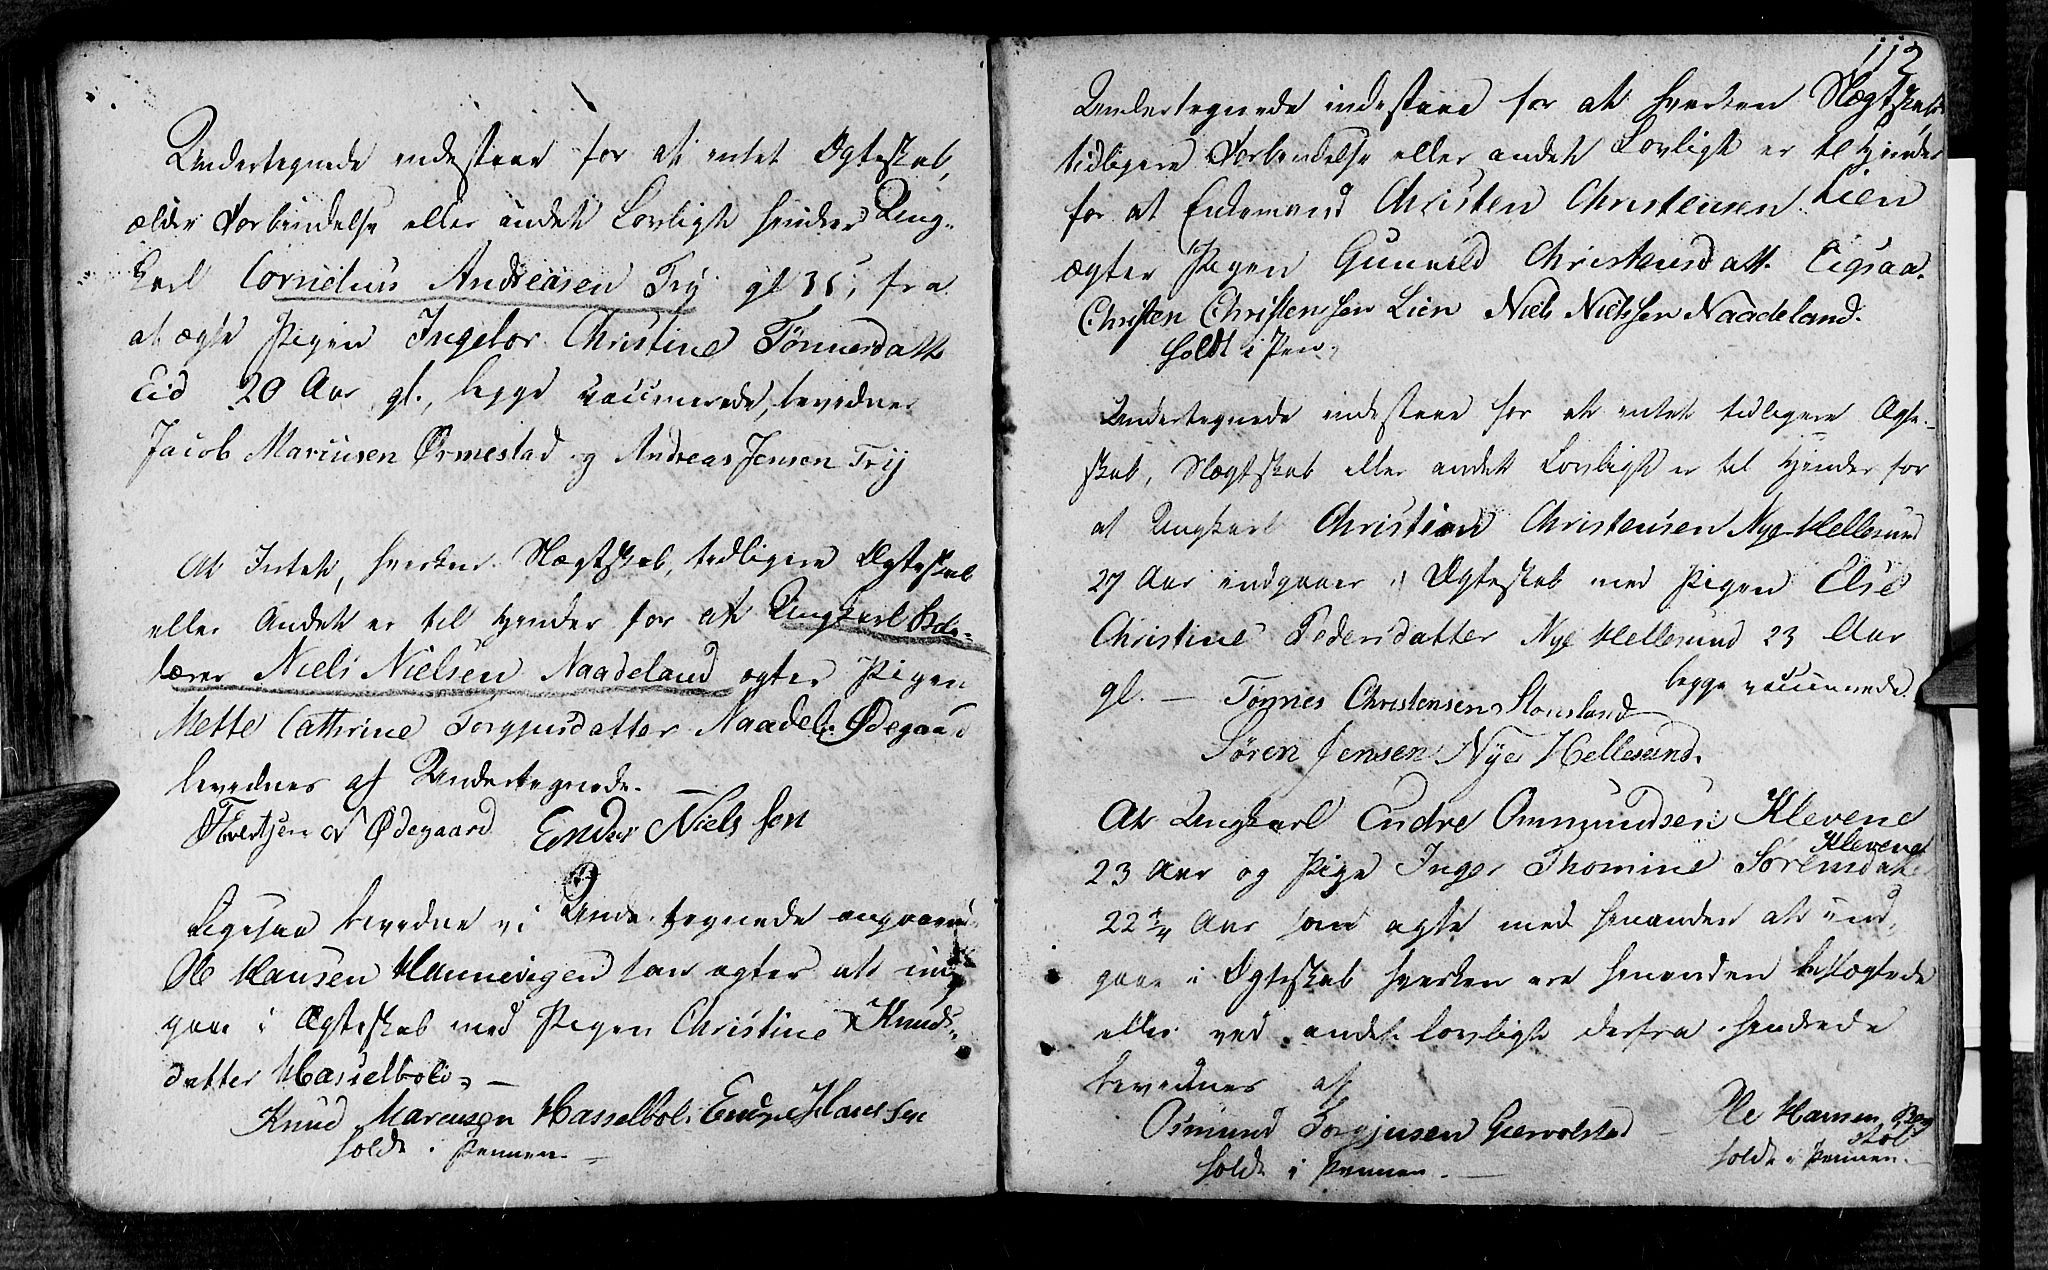 Undertegnede indestaae for at intet Ægteskab,
ældre Forbindelse eller andet Lovligt hindrer Ung-
karl Cornelius Andreasen Try gl 35, fra
at ægte Pigen Ingebor Christine Tønnesdatt
Eid 20 Aar gl., begge vaccinerede, bevidner
Jacob Marcusen Ørmestad og Andreas Jensen Try
At Intet, hverken Slægtskab, tidligere Ægteskab
eller Andet er til Hinder for at Ungkarl Skole-
lærer Niels Nielsen Naadeland ægter Pigen
Mette Cathrine Torgjusdatter Naadel. Ødegaard
bevidnes af Undertegnede.
Ødegaard Ender Nielssen
Ligesaa bevidne vi Undertegnede angaaende
Ole Hansen Hannevigen som agter at ind
gaae i Ægteskab med Pigen Christine Knuds-
datter Hasselbole. —
Knud Marcusen Hasselbol. Endre Hanssen
holdt i Pennen. —
112
Undertegnede indestaae for at hverken Slægtskab
tidligere Forbindelse eller andet Lovligt er til Hinder
for at Enkemand Christen Christensen Lien
ægter Pigen Gunvild Christensdatt. Ligsaa.
Christen Christenssen Lien Niels Nielssen Naadeland.
holdt i Pen
Undertegnede indestaae for at intet tidligere Ægte-
skab, Slægtskab eller andet Lovligt er til Hinder for
at Ungkarl Christian Christensen Nye-Hellesund
27 Aar indgaaer i Ægteskab med Pigen Else
Christine Pedersdatter Nye Hellesund 23 Aar
gl. — begge vaccinerede.
Tønnes Christensen Stousland
Søren Jensen Nye Hellesund.
At Ungkarl Endre Ommundsen Klevene
23 Aar og Pige Inger Thomine Sørensdatter Klevene
22 1/4 Aar som agte med hinanden at ind-
gaae i Ægteskab hverken ere hinanden beslægtede
eller ved andet lovligt derfra hindrede
bevidnes af
Osmund Torgjusen Gjervolstad — Ole Hansen Bogstol
holdt i Pennen. — holdt i Pennen. —